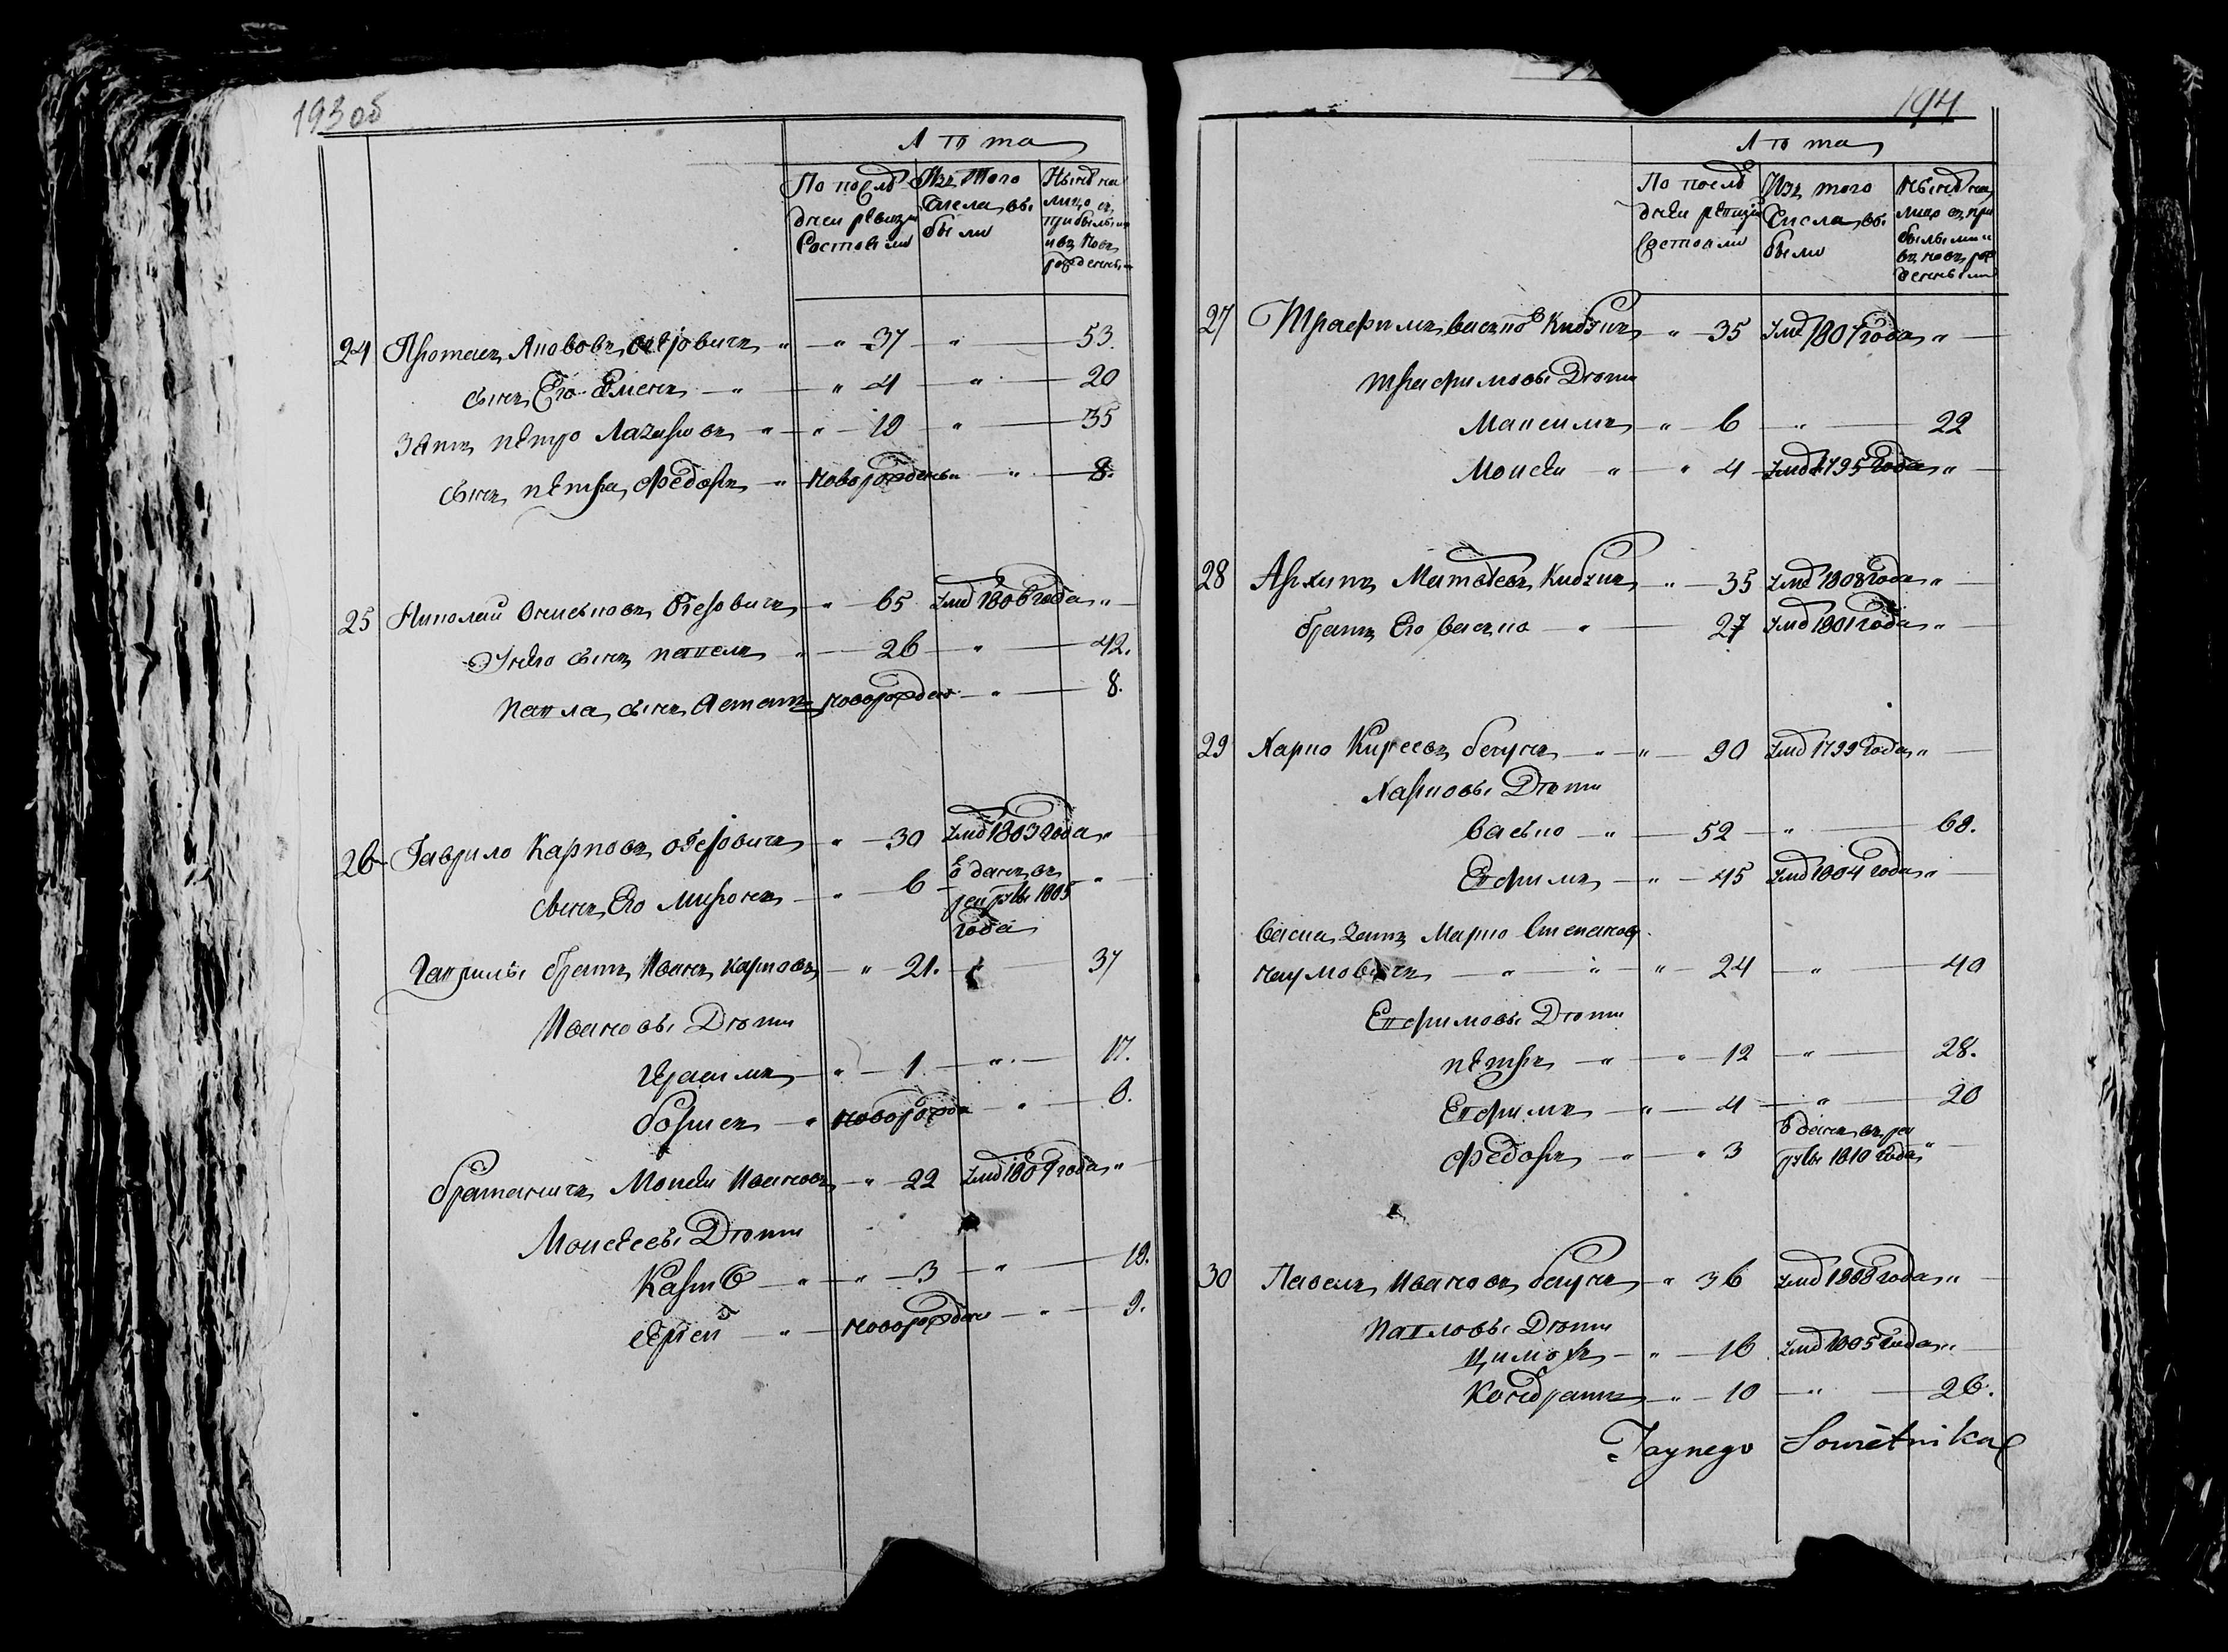 193 об
Лѣта
По послѣдней ревизіи состояли
Изъ того числа выбыли
Нынѣ на лицо съ прибылыми и въ новь рожденными
24 Протасъ Яковов Озеровичъ " " 37 " 53.
сынъ Его Еменъ " " 4 " 20
Зять Петро Лазаровъ " " 19 " 35
сынъ Петра Федоръ " новорожденъ " 8.
25 Николай Осиповъ Озеровичъ " 65 Умре 1806 года "
У него сынъ Павелъ " 26 " 42.
Павла сынъ Астапъ новорожден " 8.
26 Гаврило Карповъ Озеровичъ " 30 Умре 1803 года "
сынъ Его Миронъ " 6 Отданъ въ рекруты 1805 года "
Гаврилы братъ Иванъ Карповъ " 21. " 37
Ивановы Дѣти
Герасимъ " 1 " 17.
Борисъ " новорожде " 8.
братаничъ Мовсѣй Ивановъ " 22 Умре 1809 года "
Мовсѣевы Дѣти
Карпъ " " 3 " 19.
Сергей " новорожден " 9.
194
Лѣта
По послѣдней ревизіи состояли
Изъ того числа выбыли
Нынѣ на лицо съ прибылыми и въ новь рожденными
27 Трафимъ Васьковъ Кибзик " 35 Уме 1807 года "
Трафимовы Дѣти
Максимъ " 6 " 22
Моисѣй " " 4 Умре 1795 года "
28 Архипъ Матвѣевъ Кибзик " 35 Уме 1808 года "
братъ Его Васько " 27 Умре 1801 года "
29 Карпо Киреевъ бегунъ " " 90 Умре 1799 года "
Карповы Дѣти
Васько " 52 " 68.
Евфимъ " 45 Умре 1804 года "
Васька Зять Марко Степановъ
Наумовичъ " " " 24 " 40
Евфимовы Дѣти
Петръ " " 12 " 28.
Евфимъ " 4 " 20
Федоръ " " 3 Отданъ въ рекруты 1810 года "
30 Павелъ Ивановъ бегунъ " 36 Умре 1808 года "
Павловы Дѣти
Цимохъ " 16 Умре 1805 года "
Кондратъ " 10 " 26.
Taynego Sowietnika